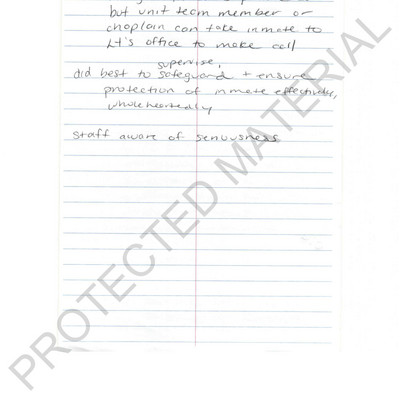 but unit team member or
chaplain can take inmate to
Lt's office to make call
supervise,
did best to safeguard + ensure
protection of inmate effectively,
wholeheartedly
staff aware of seriousness
PROTECTED MATERIAL